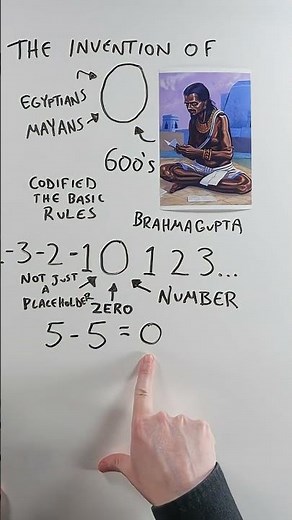 THE INVENTION OF
0
EGYPTIANS
MAYANS
600's
CODIFIED
THE BASIC
RULES
BRAHMAGUPTA
-3-2-1 0 1 2 3...
NOT JUST
A
PLACEHOLDER
ZERO
NUMBER
5-5=0